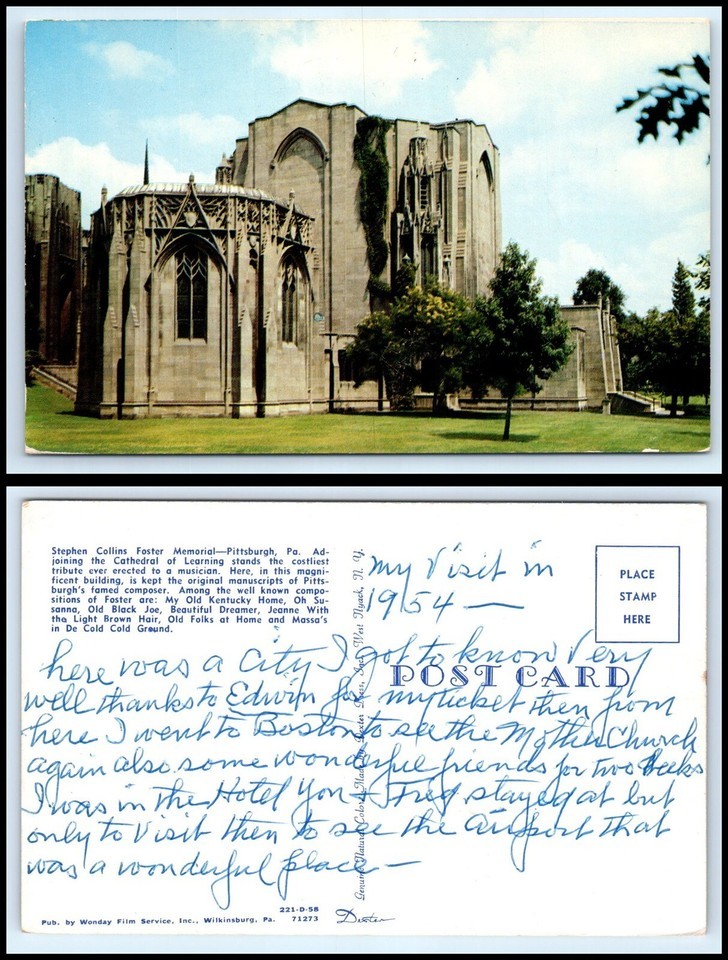 Stephen Collins Foster Memorial—Pittsburgh, Pa. Ad-
joining the Cathedral of Learning stands the costliest
tribute ever erected to a musician. Here, in this magni-
ficent building, is kept the original manuscripts of Pitts-
burgh's famed composer. Among the well known compo-
sitions of Foster are: My Old Kentucky Home, Oh Su-
sanna, Old Black Joe, Beautiful Dreamer, Jeanne With
the Light Brown Hair, Old Folks at Home and Massa's
in De Cold Cold Ground.
my Visit in
1954 —
PLACE
STAMP
HERE
POST CARD
here was a City I got to know Very
well thanks to Edwin for my ticket then from
here I went to Boston to see the Mother Church
again also some wonderful friends for two Weeks
I was in the Hotel You & Fred stayed at but
only to Visit then to see the Airport that
was a wonderful place —
Genuine Natural Color Made by Dexter Press, Inc., West Nyack, N. Y.
221-D-58
Pub. by Wonday Film Service, Inc., Wilkinsburg, Pa. 71273
Dexter